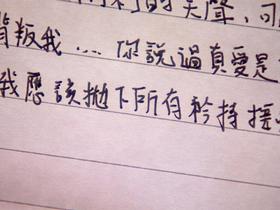 的笑聲,可
背叛我....你說過真愛是
我應該拋下所有矜持擡